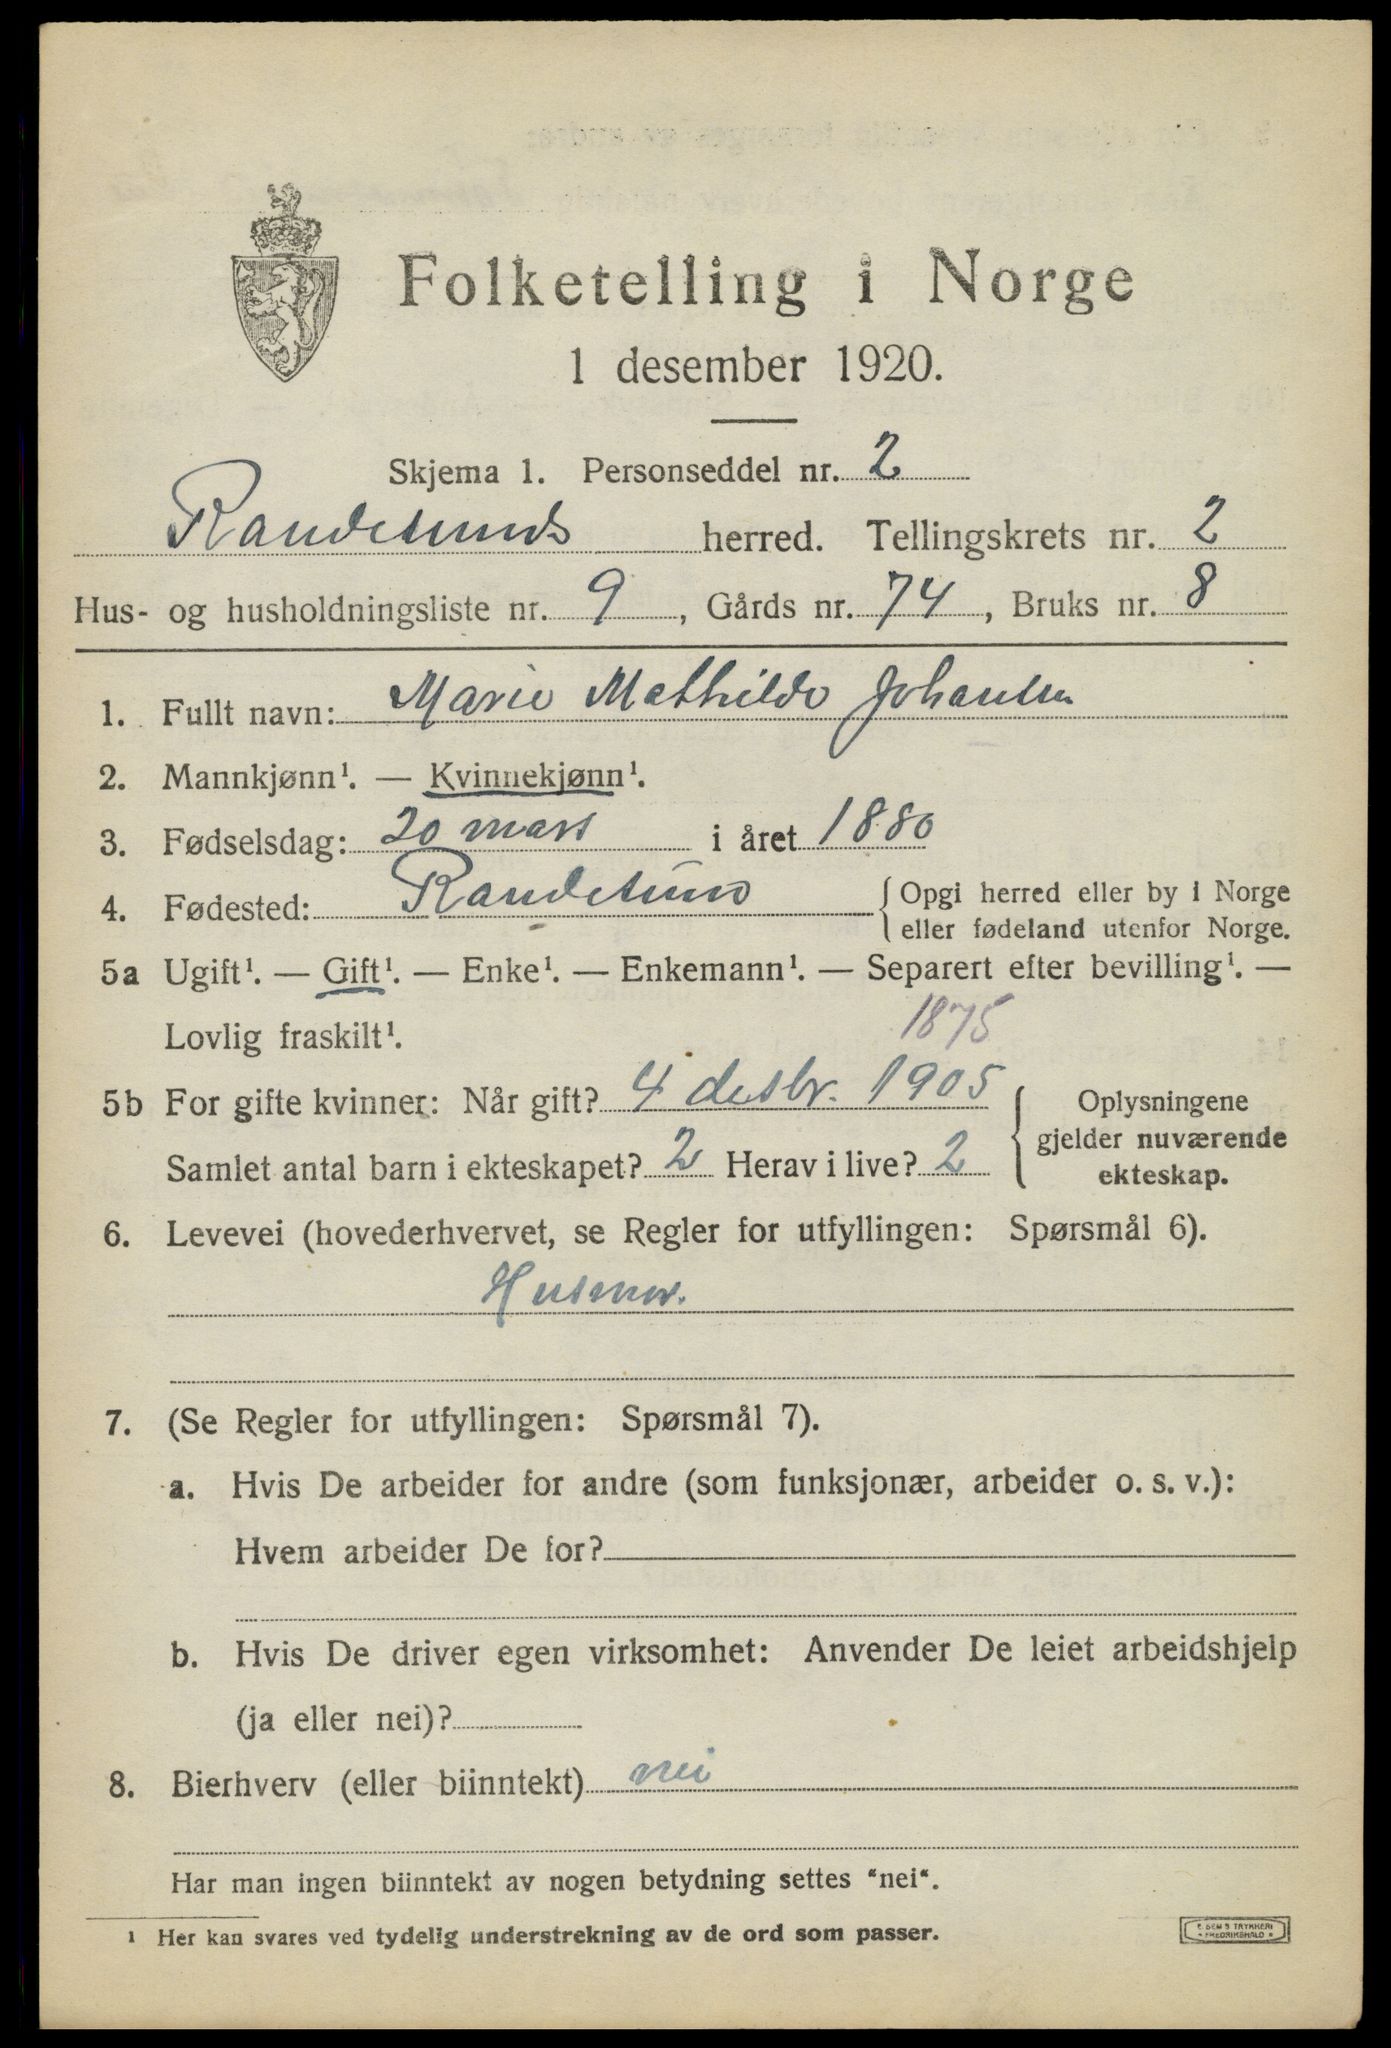 Folketelling i Norge
1 desember 1920.
Skjema 1. Personseddel nr. 2
Randesunds herred. Tellingskrets nr. 2
Hus- og husholdningsliste nr. 9, Gårds nr. 74, Bruks nr. 8
1. Fullt navn: Marie Mathilde Johansen
2. Mannkjønn¹. — Kvinnekjønn¹.
3. Fødselsdag: 20 mars i året 1880
4. Fødested: Randesund {Opgi herred eller by i Norge
eller fødeland utenfor Norge.
5a Ugift¹. — Gift¹. — Enke¹. — Enkemann¹. — Separert efter bevilling¹. —
Lovlig fraskilt¹.
1875
5b For gifte kvinner: Når gift? 4 desbr. 1905
Samlet antal barn i ekteskapet? 2 Herav i live? 2
Oplysningene
gjelder nuværende
ekteskap.
6. Levevei (hovederhvervet, se Regler for utfyllingen: Spørsmål 6).
Husmor.
7. (Se Regler for utfyllingen: Spørsmål 7).
a. Hvis De arbeider for andre (som funksjonær, arbeider o. s. v.):
Hvem arbeider De for?
b. Hvis De driver egen virksomhet: Anvender De leiet arbeidshjelp
(ja eller nei)?
8. Bierhverv (eller biinntekt) nei
Har man ingen biinntekt av nogen betydning settes "nei".
¹ Her kan svares ved tydelig understrekning av de ord som passer.
E. SEM'S TRYKKERI
FREDRIKSHALD